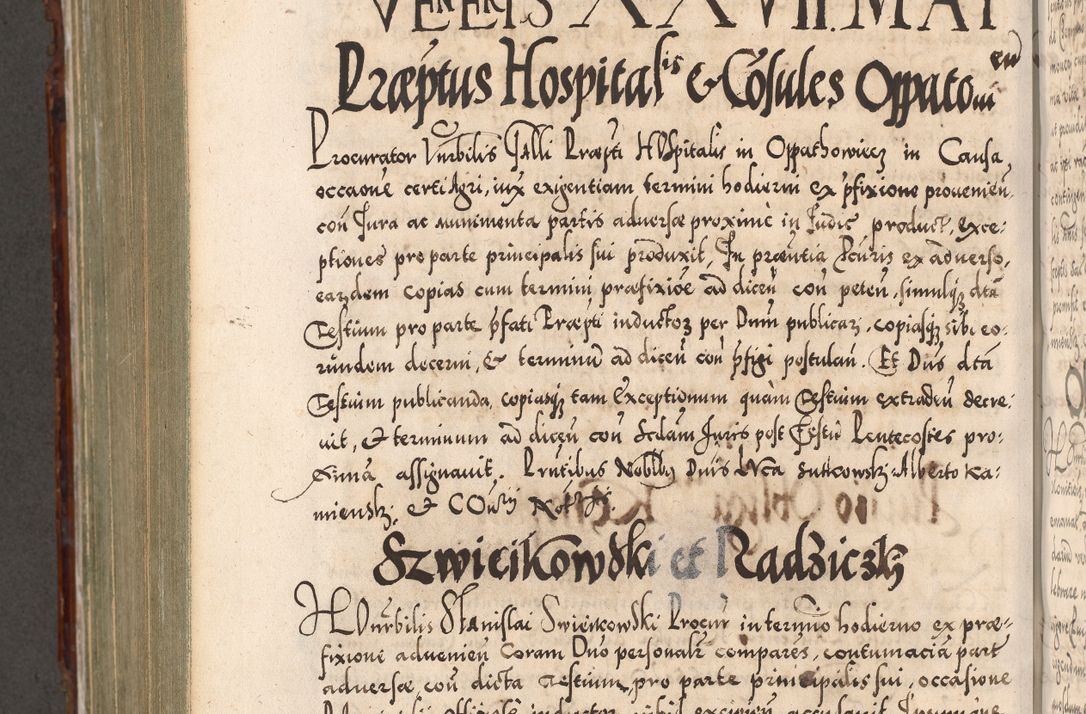 VENERIS XXVII. MAI
Præptus Hospitalis & Cosules Oppatouien
Procurator Vnrbilis Galli Præpti Hospitalis in Oppathowiecz in Causa
occaone certi Agri, iux exigentiam termini hodierni ex pfixione prouenien.
con Jura ac munimenta partis aduersæ proximè in Judic product, exce-
ptiones pro parte principalis sui produxit, In præntia Pcuris ex aduerso,
earundem copias cum termini præfixioe ad dicen con peten, simulqz dta
Testium pro parte pfati Præpti inductoz per Dnum publicari, copiasqz sibi eo-
rundem decerni, & terminu ad dicen con pfigi postulan. Et Dnus dta
Testium publicanda, copiasqz tam Exceptionum quàm Testium extraden decre-
uit, & terminum ad dicen con Scdam Juris post Festu Pentecostes pro-
xima assignauit. Pntibus Noblbz Duis Luca Sutkowski Alberto Ka-
miensky, & Notrijs.
Szwieikowski et Radziczky
Hon Vnrbilis Stanislai Swienkowski Procur in termino hodierno ex præ-
fixione aduenien Coram Dno personalr compares, contumacia part
aduersæ, con dicta Testium, pro parte principalis sui, occasione
officiale inductor nihil excipien accusauit Ipsumque